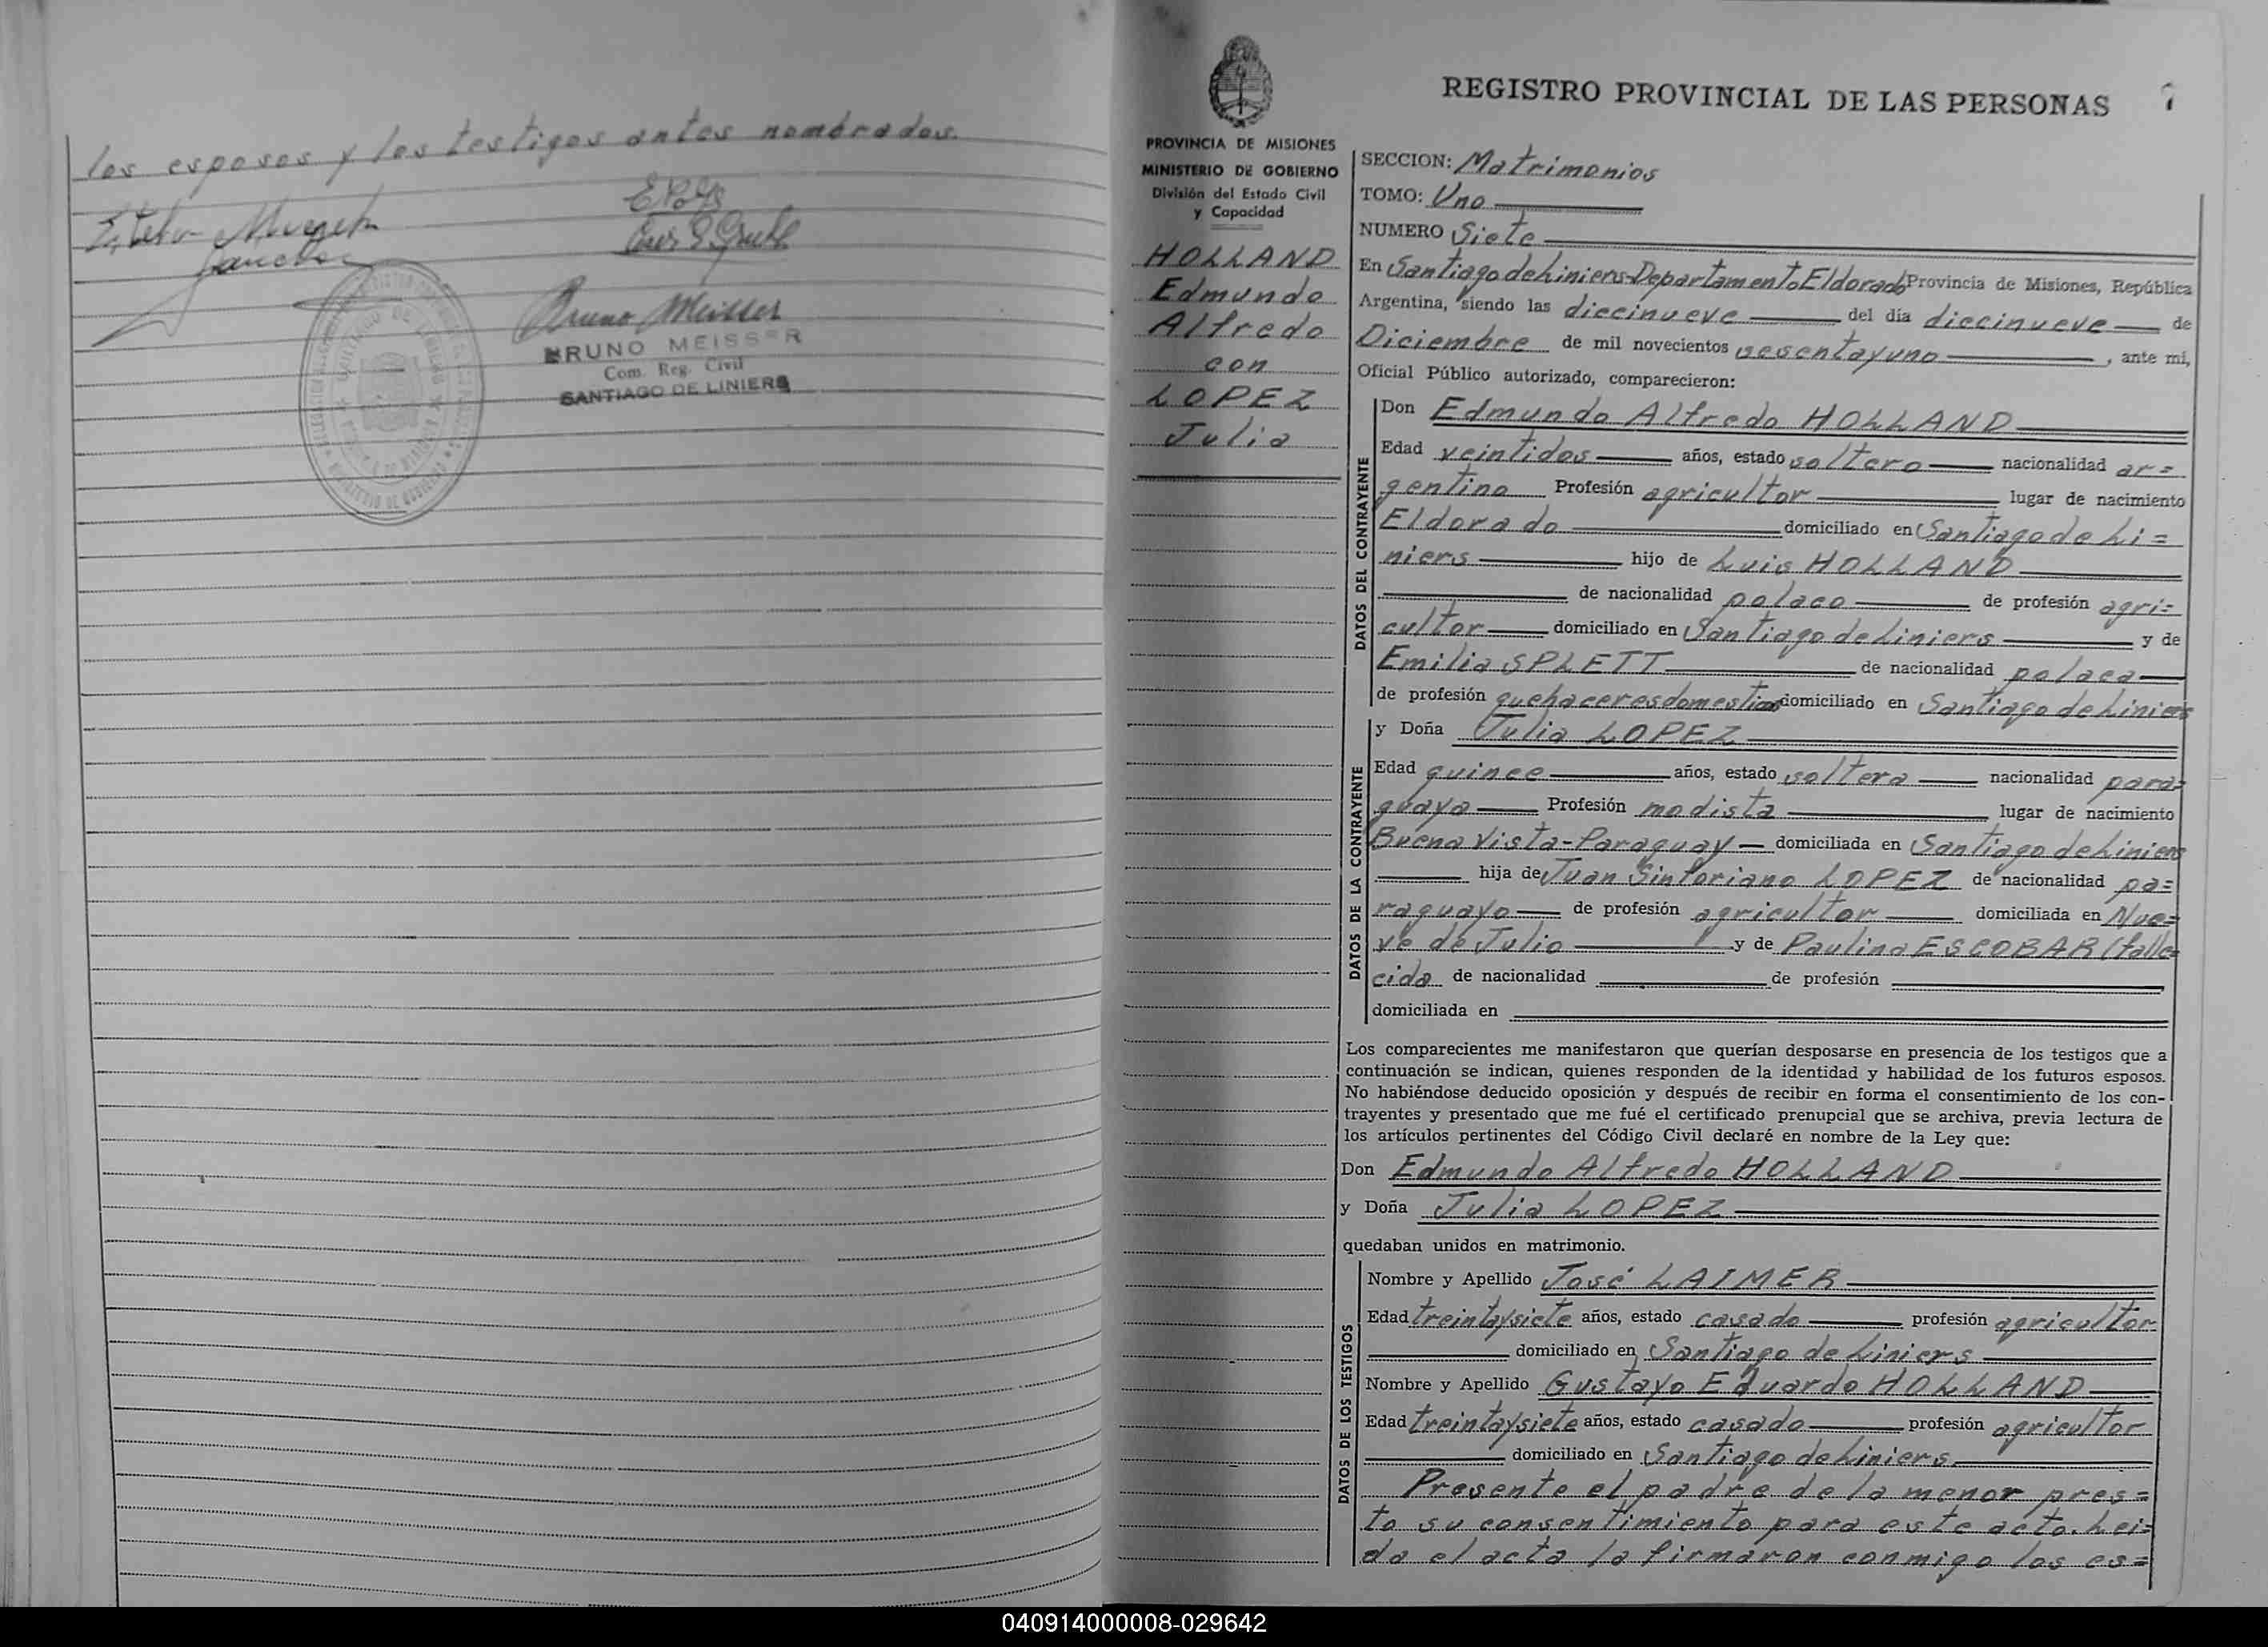 los esposos y los testigos antes nombrados.
Bruno Meisser
BRUNO MEISSER
Com. Reg. Civil
SANTIAGO DE LINIERS
7
REGISTRO PROVINCIAL DE LAS PERSONAS
PROVINCIA DE MISIONES
MINISTERIO DE GOBIERNO
División del Estado Civil
y Capacidad
HOLLAND
Edmundo
Alfredo
con
LOPEZ
Julia
SECCION: Matrimonios
TOMO: Uno
NUMERO Siete
En Santiago de Liniers-Departamento Eldorado Provincia de Misiones, República
Argentina, siendo las diecinueve del día diecinueve de
Diciembre de mil novecientos sesentayuno, ante mi,
Oficial Público autorizado, comparecieron:
DATOS DEL CONTRAYENTE
Don Edmundo Alfredo HOLLAND
Edad veintidos años, estado soltero nacionalidad ar=
gentino Profesión agricultor lugar de nacimiento
Eldorado domiciliado en Santiago de Li=
niers hijo de Luis HOLLAND
de nacionalidad polaco de profesión agri=
cultor domiciliado en Santiago de Liniers y de
Emilia SPLETT de nacionalidad polaca
de profesión quehaceres domesticos domiciliado en Santiago de Liniers
DATOS DE LA CONTRAYENTE
y Doña Julia LOPEZ
Edad quince años, estado soltera nacionalidad para=
guaya Profesión modista lugar de nacimiento
Buena Vista-Paraguay domiciliada en Santiago de Liniers
hija de Juan Sinforiano LOPEZ de nacionalidad pa=
raguayo de profesión agricultor domiciliada en Nue=
ve de Julio y de Paulina ESCOBAR (falle=
cida de nacionalidad de profesión
domiciliada en
Los comparecientes me manifestaron que querían desposarse en presencia de los testigos que a
continuación se indican, quienes responden de la identidad y habilidad de los futuros esposos.
No habiéndose deducido oposición y después de recibir en forma el consentimiento de los con-
trayentes y presentado que me fué el certificado prenupcial que se archiva, previa lectura de
los artículos pertinentes del Código Civil declaré en nombre de la Ley que:
Don Edmundo Alfredo HOLLAND
y Doña Julia LOPEZ
quedaban unidos en matrimonio.
DATOS DE LOS TESTIGOS
Nombre y Apellido José LAIMER
Edad treintaysiete años, estado casado profesión agricultor
domiciliado en Santiago de Liniers
Nombre y Apellido Gustavo Eduardo HOLLAND
Edad treintaysiete años, estado casado profesión agricultor
domiciliado en Santiago de Liniers
Presente el padre de la menor pres=
to su consentimiento para este acto. Lei=
da el acta la firmaron conmigo los es=
040914000008-029642